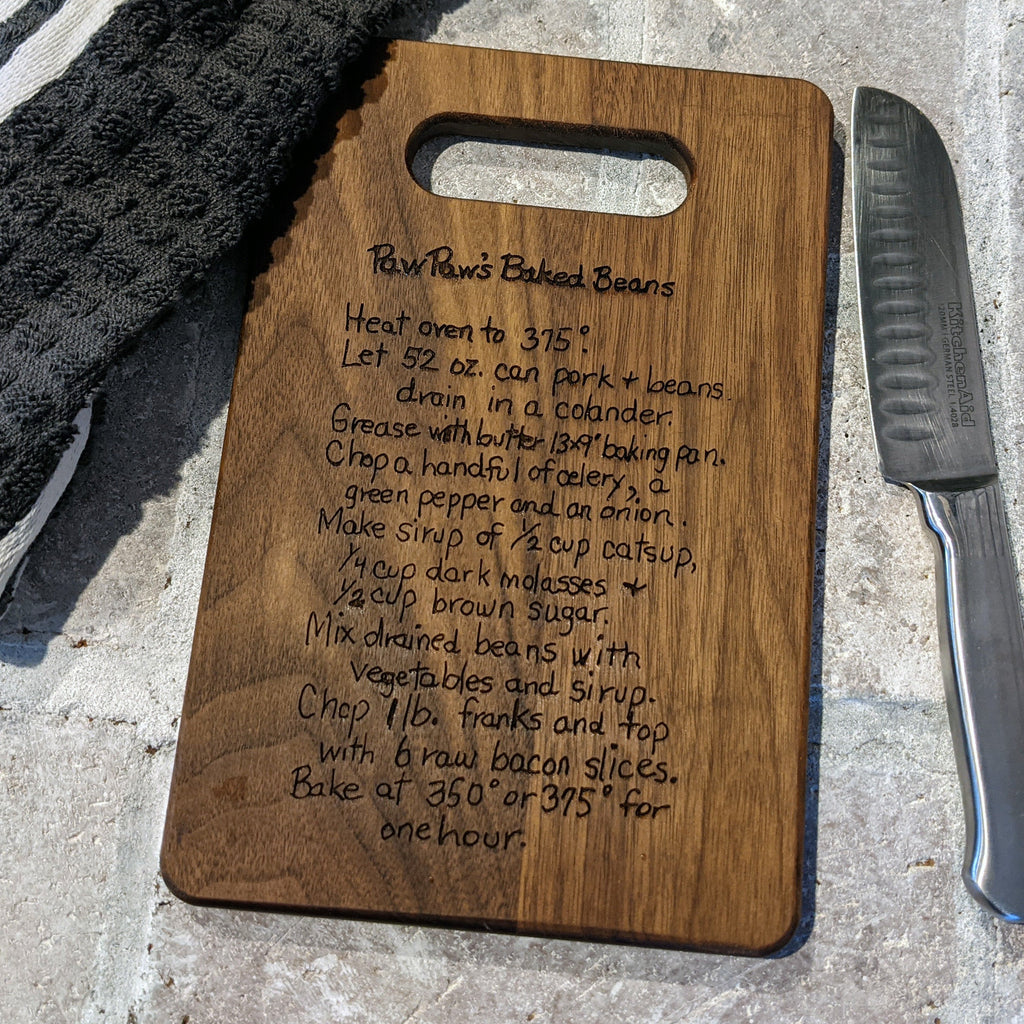 PawPaw's Baked Beans
Heat oven to 375°.
Let 52 oz. can pork + beans
drain in a colander.
Grease with butter 13x9" baking pan.
Chop a handful of celery, a
green pepper and an onion.
Make sirup of 1/2 cup catsup,
1/4 cup dark molasses +
1/2 cup brown sugar.
Mix drained beans with
vegetables and sirup.
Chop 1 lb. franks and top
with 6 raw bacon slices.
Bake at 350° or 375° for
one hour.
KitchenAid
120MM | GERMAN STEEL 1.4028